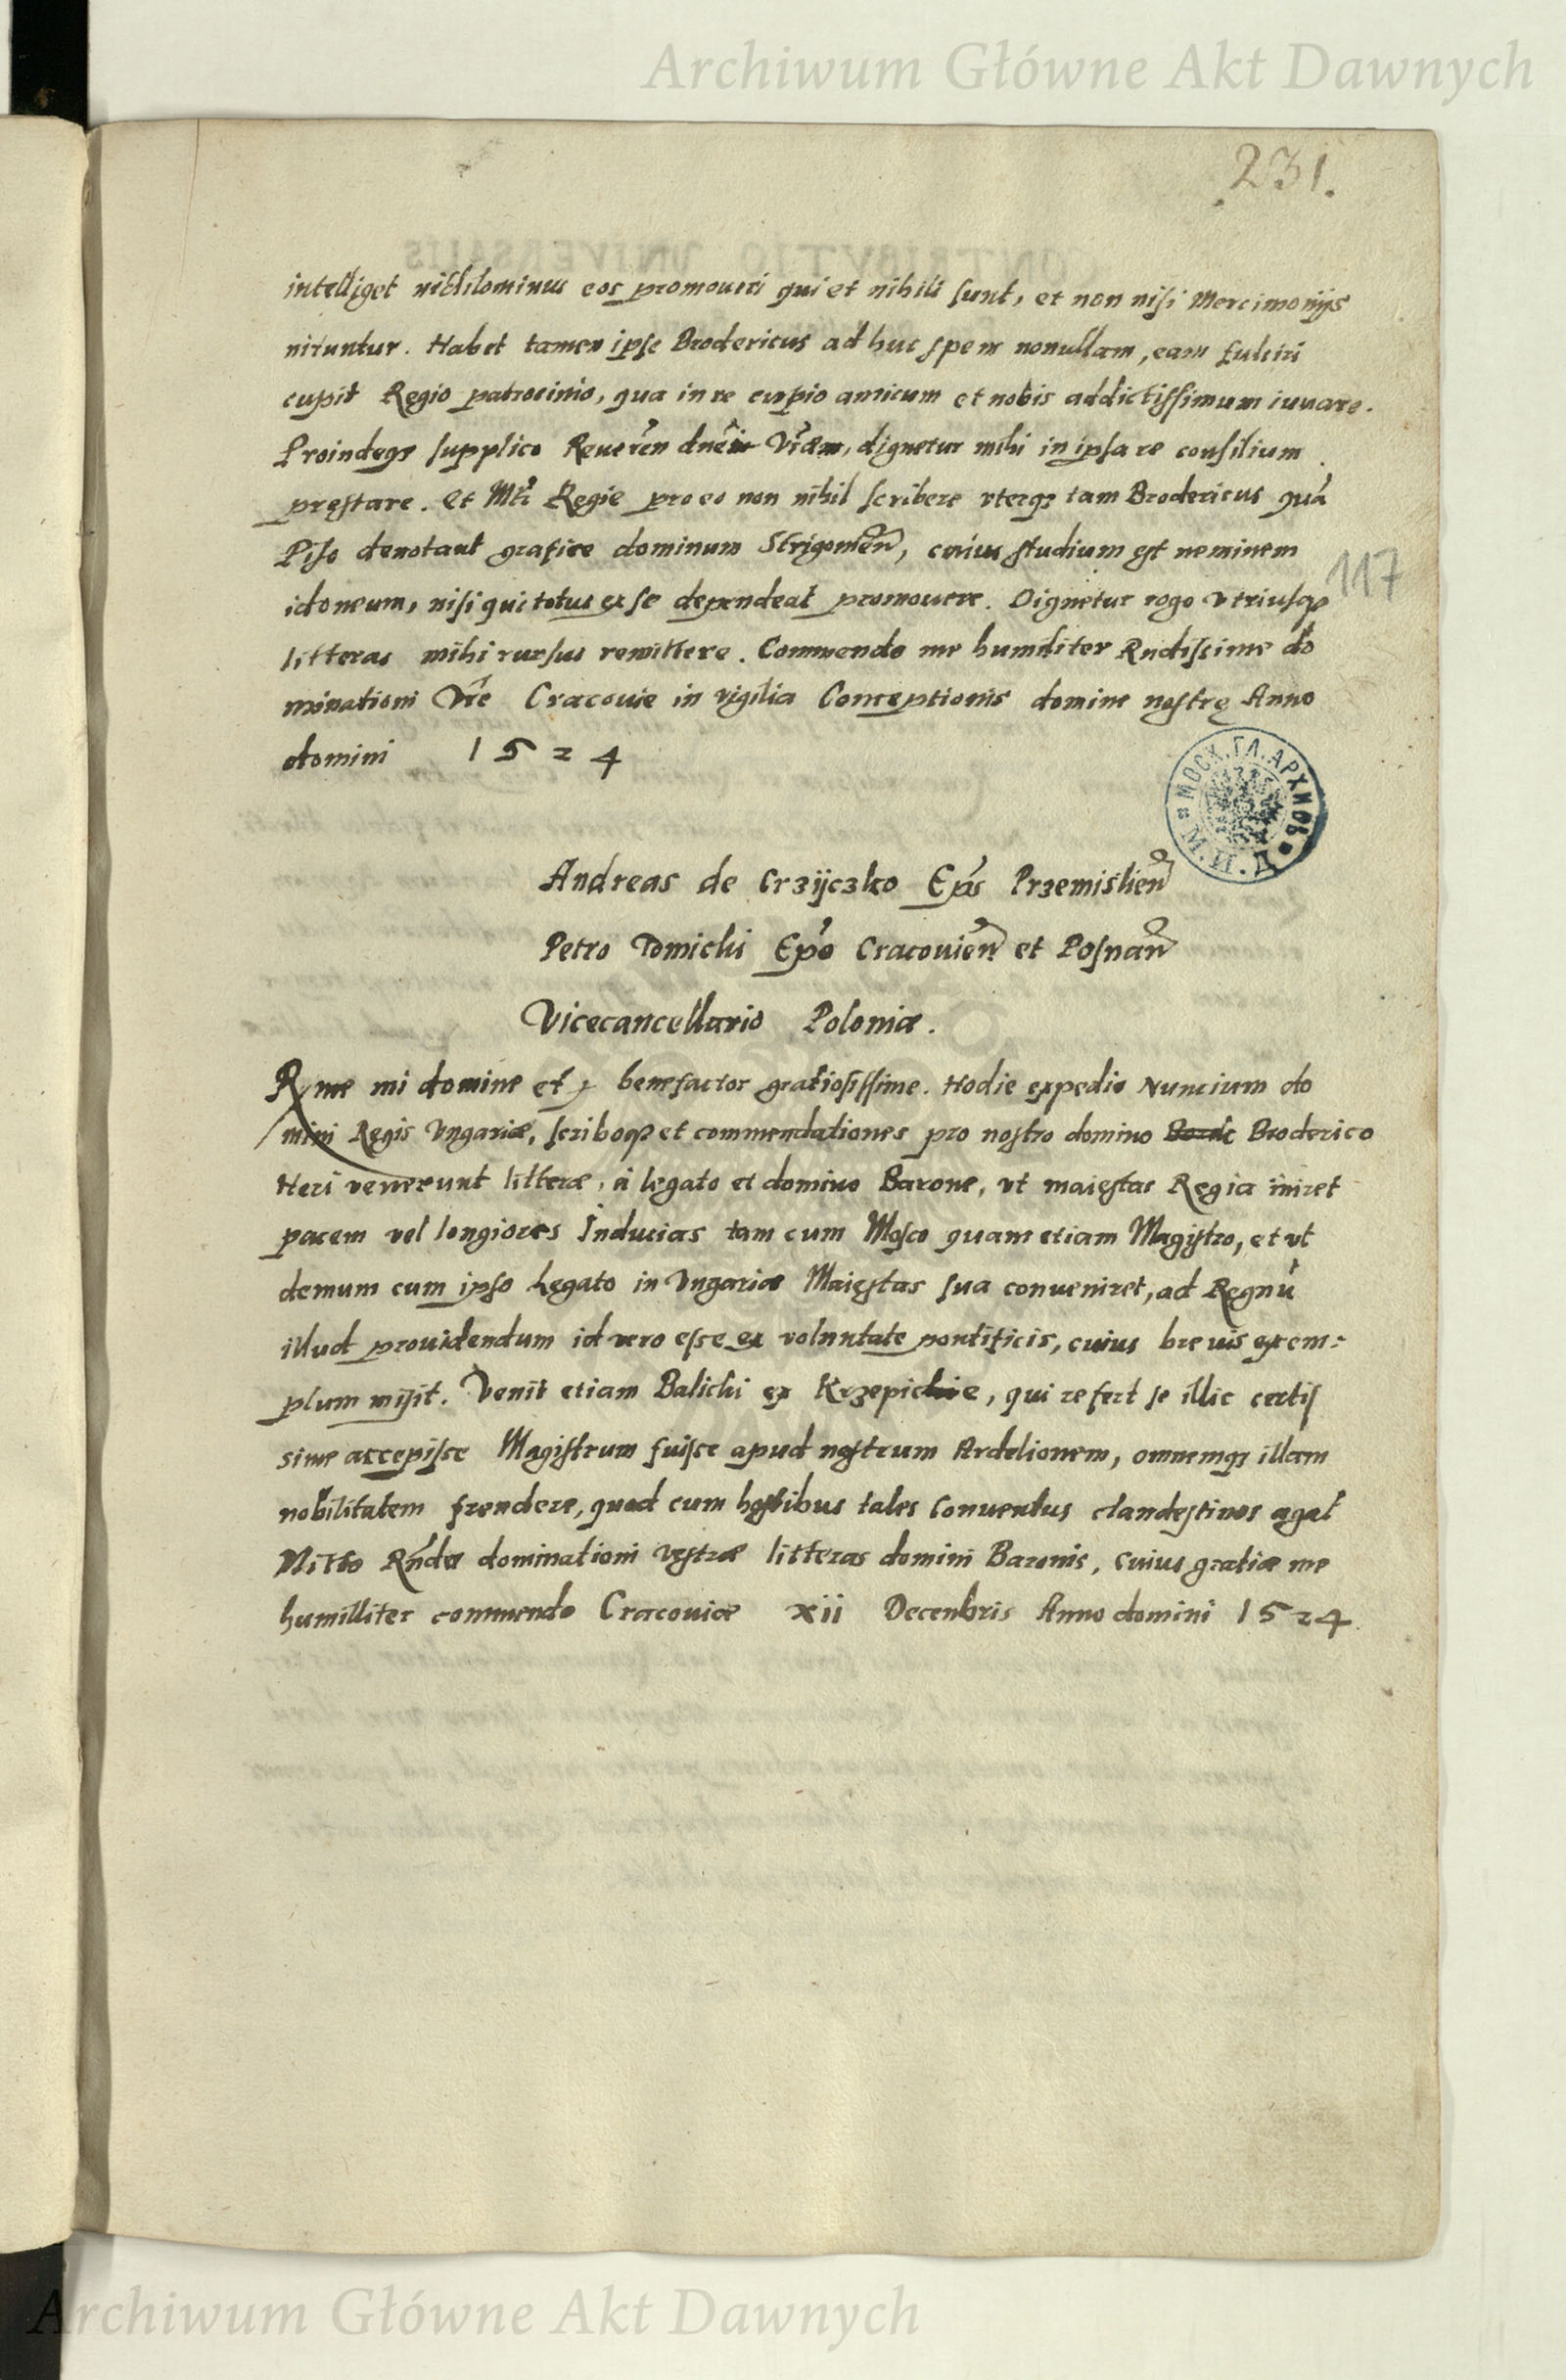 Archiwum Główne Akt Dawnych
231.
intelliget nichilominus eos promoueri qui et nihili sunt, et non nisi Mercimonijs
nituntur. Habet tamen ipse Brodericus ad huc spem nonullam, eam fulciri
cupit Regio patrocinio, qua in re cupio amicum et nobis addictissimum iuuare.
Proindeq3 supplico Reueren̄ dnēm Vrām, dignetur mihi in ipsa re consilium
pręstare. Et Mti Regie pro eo non nihil scribere vterq3 tam Brodericus quā
Piso denotant grafice dominum Strigonień, cuius studium est neminem
idoneum, nisi qui totus ex se dependeat promouere. Dignetur rogo vtriusq3
117
litteras mihi rursus remittere. Commendo me humiliter Rndissime do
minationi Vrē Cracouie in vigilia Conceptionis domine nostrę Anno
domini 1524
МОСК. ГЛ. АРХИВЪ М. И. Д.
Andreas de Crzijczko Ep̄s Przemislień
Petro Tomichi Ep̄o Cracouień et Posnań
Vicecancellario Poloniæ.
Rme mi domine et benefactor gratiosissime. Hodie expedio Nuncium do
mini Regis Vngariæ, scriboq3 et commendationes pro nostro domino Brodc Broderico
Heri venerunt litteræ, à legato et domino Barone, vt maiestas Regia iniret
pacem vel longiores Inducias tam cum Mosco quam etiam Magistro, et vt
demum cum ipso Legato in Vngariæ Maiestas sua conueniret, ad Regnū
illud prouidendum id vero esse ex voluntate pontificis, cuius breuis exem:
plum misit. Venit etiam Balichi ex Krzepichie, qui refert se illic certis
sime accepisse Magistrum fuisse apud nostrum Ardelionem, omnemq3 illam
nobilitatem frendere, quod cum hostibus tales Conuentus clandestinos agat
Mitto Rn̄dæ dominationi vestræ litteras domini Baronis, Cuius gratiæ me
humilliter commendo Cracouiæ xii Decenbris Anno domini 1524
Archiwum Główne Akt Dawnych